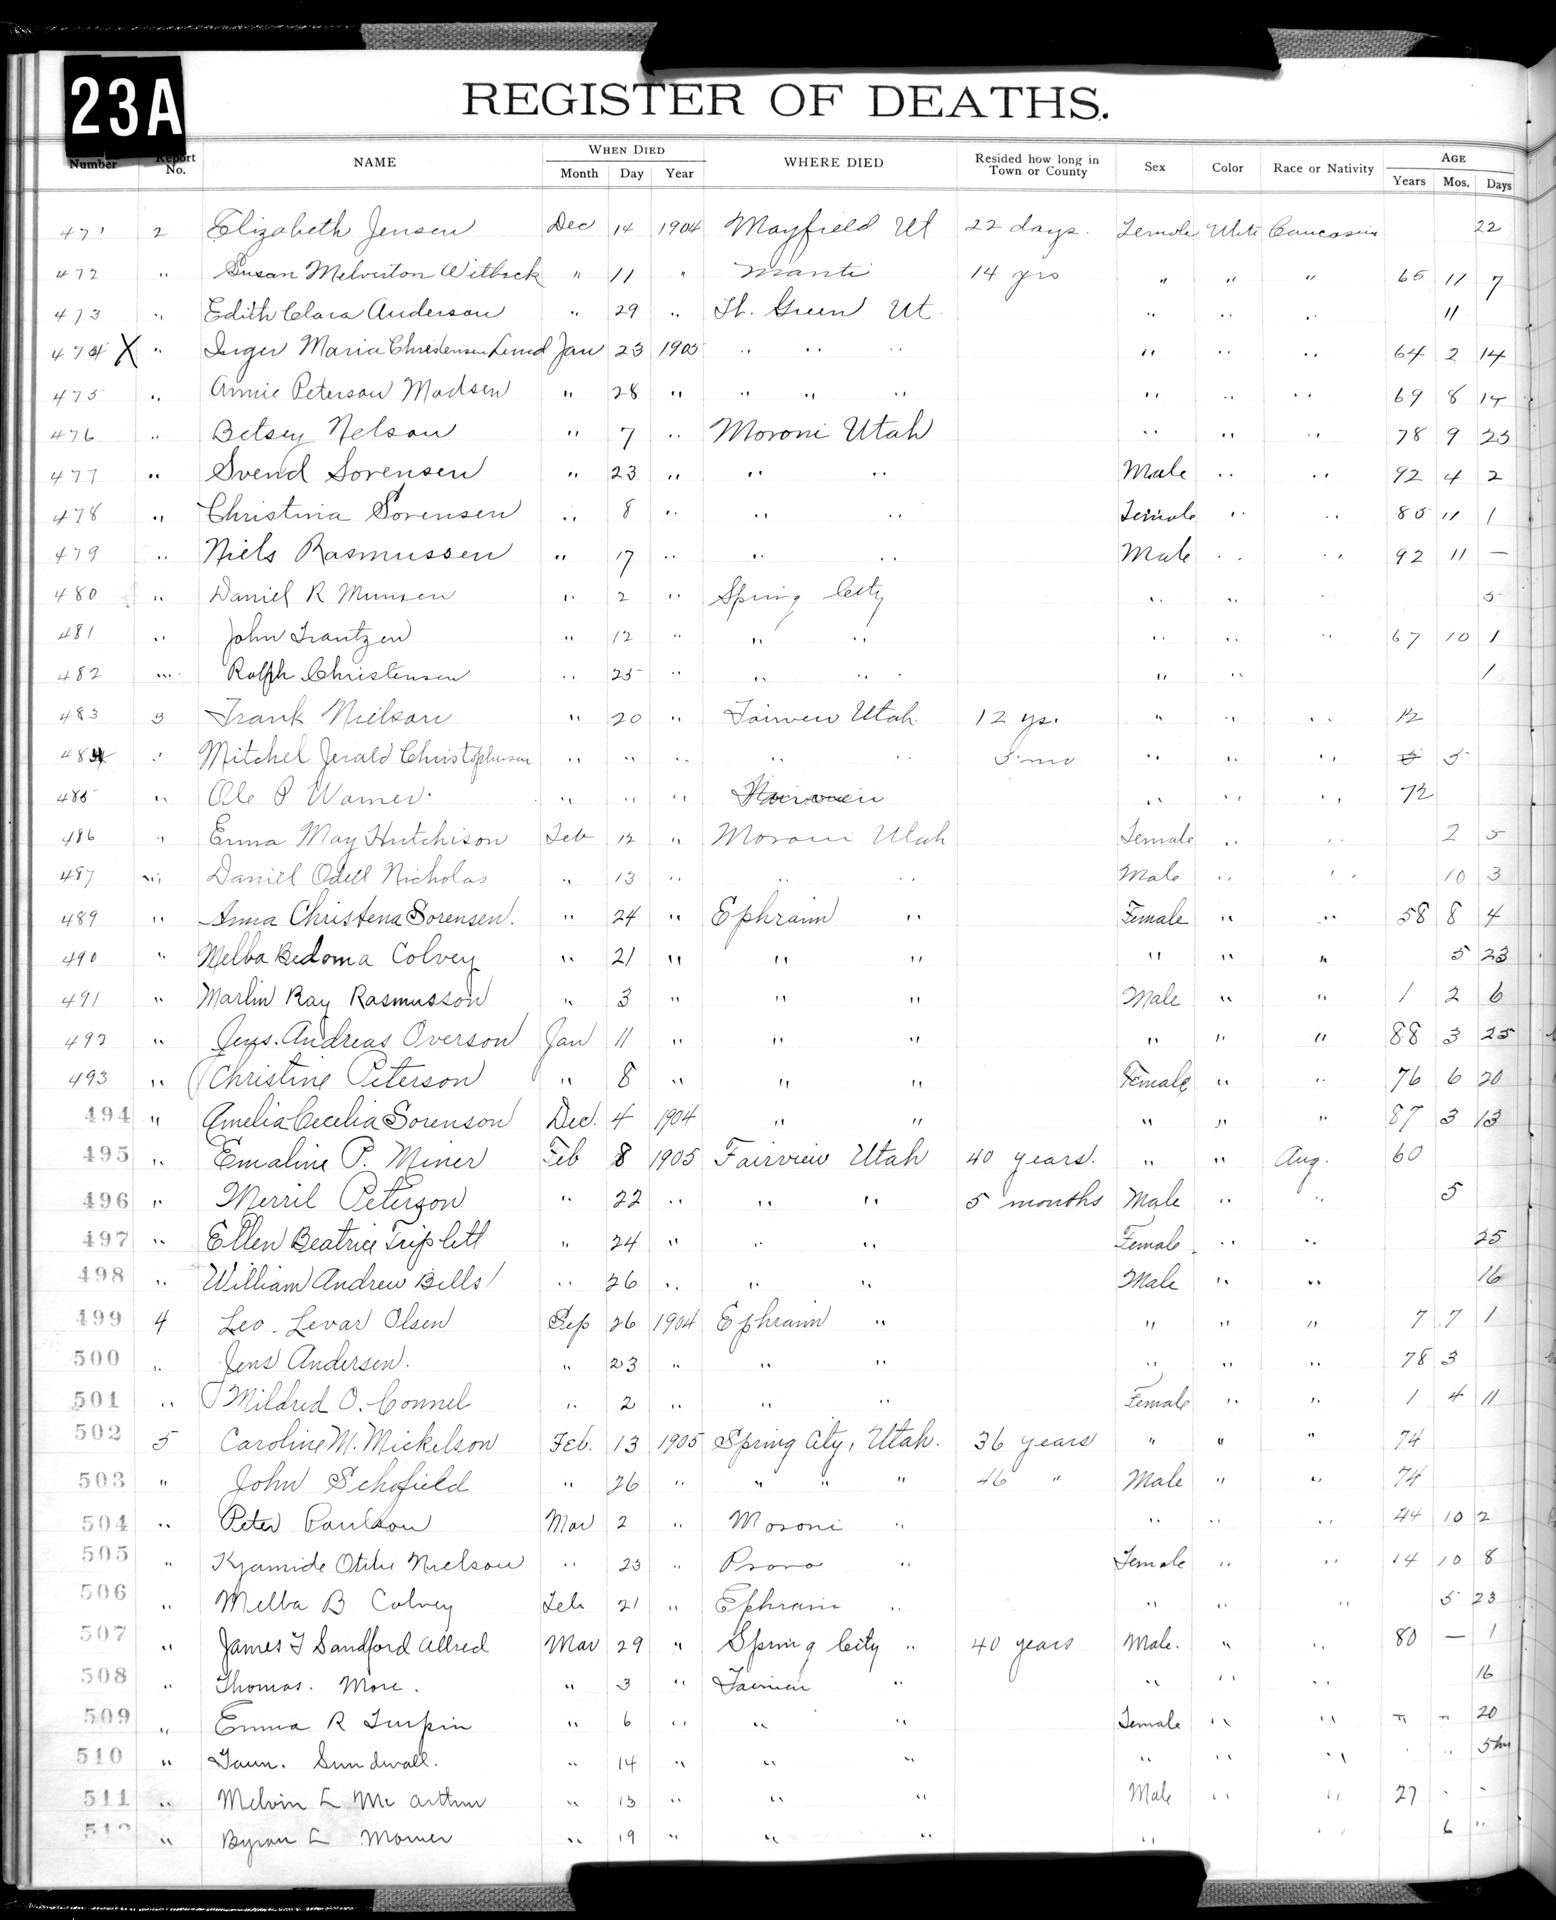 23A
REGISTER OF DEATHS.
Number Report No. NAME WHEN DIED Month Day Year WHERE DIED Resided how long in Town or County Sex Color Race or Nativity AGE Years Mos. Days
471 2 Elizabeth Jensen Dec 14 1904 Mayfield Ut 22 days. Female White Caucasian 22
472 " Susan Melverton Witbeck " 11 " Manti 14 yrs " " " 65 11 7
473 " Edith Clara Anderson " 29 " Ft. Green Ut. " " " 11
474 X " Inger Maria Christensen Lund Jan 23 1905 " " " " " " 64 2 14
475 " Annie Peterson Madsen " 28 " " " " " " " 69 8 14
476 " Betsey Nelson " 7 " Moroni Utah " " " 78 9 23
477 " Svend Sorensen " 23 " " " Male " " 92 4 2
478 " Christina Sorensen " 8 " " " Female " " 85 11 1
479 " Niels Rasmussen " 17 " " " Male " " 92 11 —
480 " Daniel R Munsen " 2 " Spring City " " 5
481 " John Frantzen " 12 " " " " " " 67 10 1
482 " Ralph Christensen " 25 " " " " " 1
483 3 Frank Nielson " 20 " Fairview Utah 12 ys. " " " 12
484 " Mitchel Jerald Christopherson " " " " " 5 mo " " " 5 5
485 " Ole P Warner " " " Fairview " " " 72
486 " Erma May Hutchison Feb 12 " Moroni Utah Female " " 2 5
487 " Daniel Odell Nicholas " 13 " " " Male " " 10 3
489 " Anna Christena Sorensen. " 24 " Ephraim " Female " " 58 8 4
490 " Melba Bedoma Colvey " 21 " " " " " " 5 23
491 " Marlin Ray Rasmusson " 3 " " " Male " " 1 2 6
492 " Jens. Andreas Overson Jan 11 " " " " " " 88 3 25
493 " Christine Peterson " 8 " " " Female " " 76 6 20
494 " Amelia Cecelia Sorenson Dec. 4 1904 " " " " " 87 3 13
495 " Emaline P. Miner Feb 8 1905 Fairview Utah 40 years. " " Aug. 60
496 " Merril Peterson " 22 " " " 5 months Male " " 5
497 " Ellen Beatrice Triplett " 24 " " " Female " " 25
498 " William Andrew Bills " 26 " " " Male " " 16
499 4 Leo. Levar Olsen Sep 26 1904 Ephraim " " " " 7 7 1
500 " Jens Andersen. " 23 " " " " " " 78 3
501 " Mildred O. Connel " 2 " " " Female " " 1 4 11
502 5 Caroline M. Mickelson Feb. 13 1905 Spring City, Utah. 36 years " " " 74
503 " John Schofield " 26 " " " " 46 " Male " " 74
504 " Peter Paulson Mar 2 " Moroni " " " " 44 10 2
505 " Nielson " 23 " Provo " Female " " 14 10 8
506 " Melba B Colvey Feb 21 " Ephraim " " " " 5 23
507 " James T Sandford Allred Mar 29 " Spring City " 40 years Male. " " 80 — 1
508 " Thomas. More. " 3 " Fairview " " " " 16
509 " Emma R Turpin " 6 " " " Female " " " " 20
510 " Sundwall. " 14 " " " " " " " 5 hrs
511 " Melvin L Mc arthur " 13 " " " Male " " 27 - -
512 " Byron L " 19 " " " " " 6 "